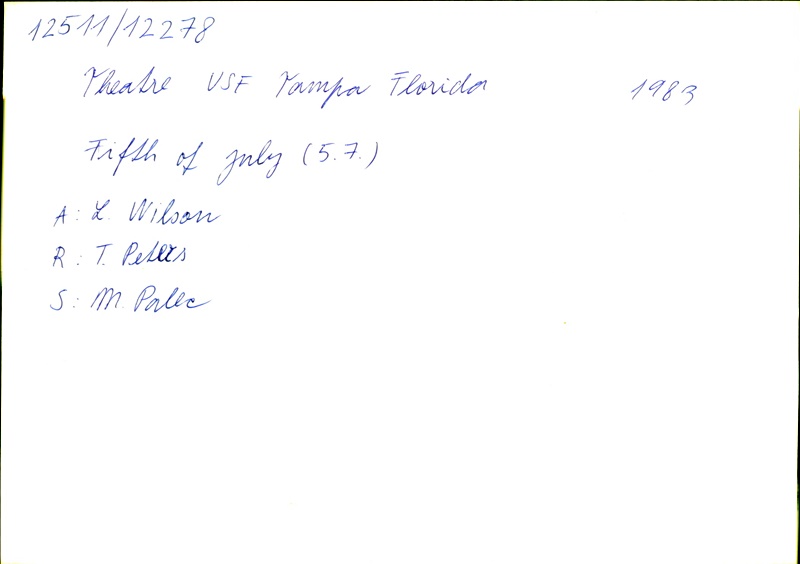 12511/12278
Theatre USF Tampa Florida 1983
Fifth of july (5.7.)
A: L. Wilson
R: T. Peters
S: M. Palec